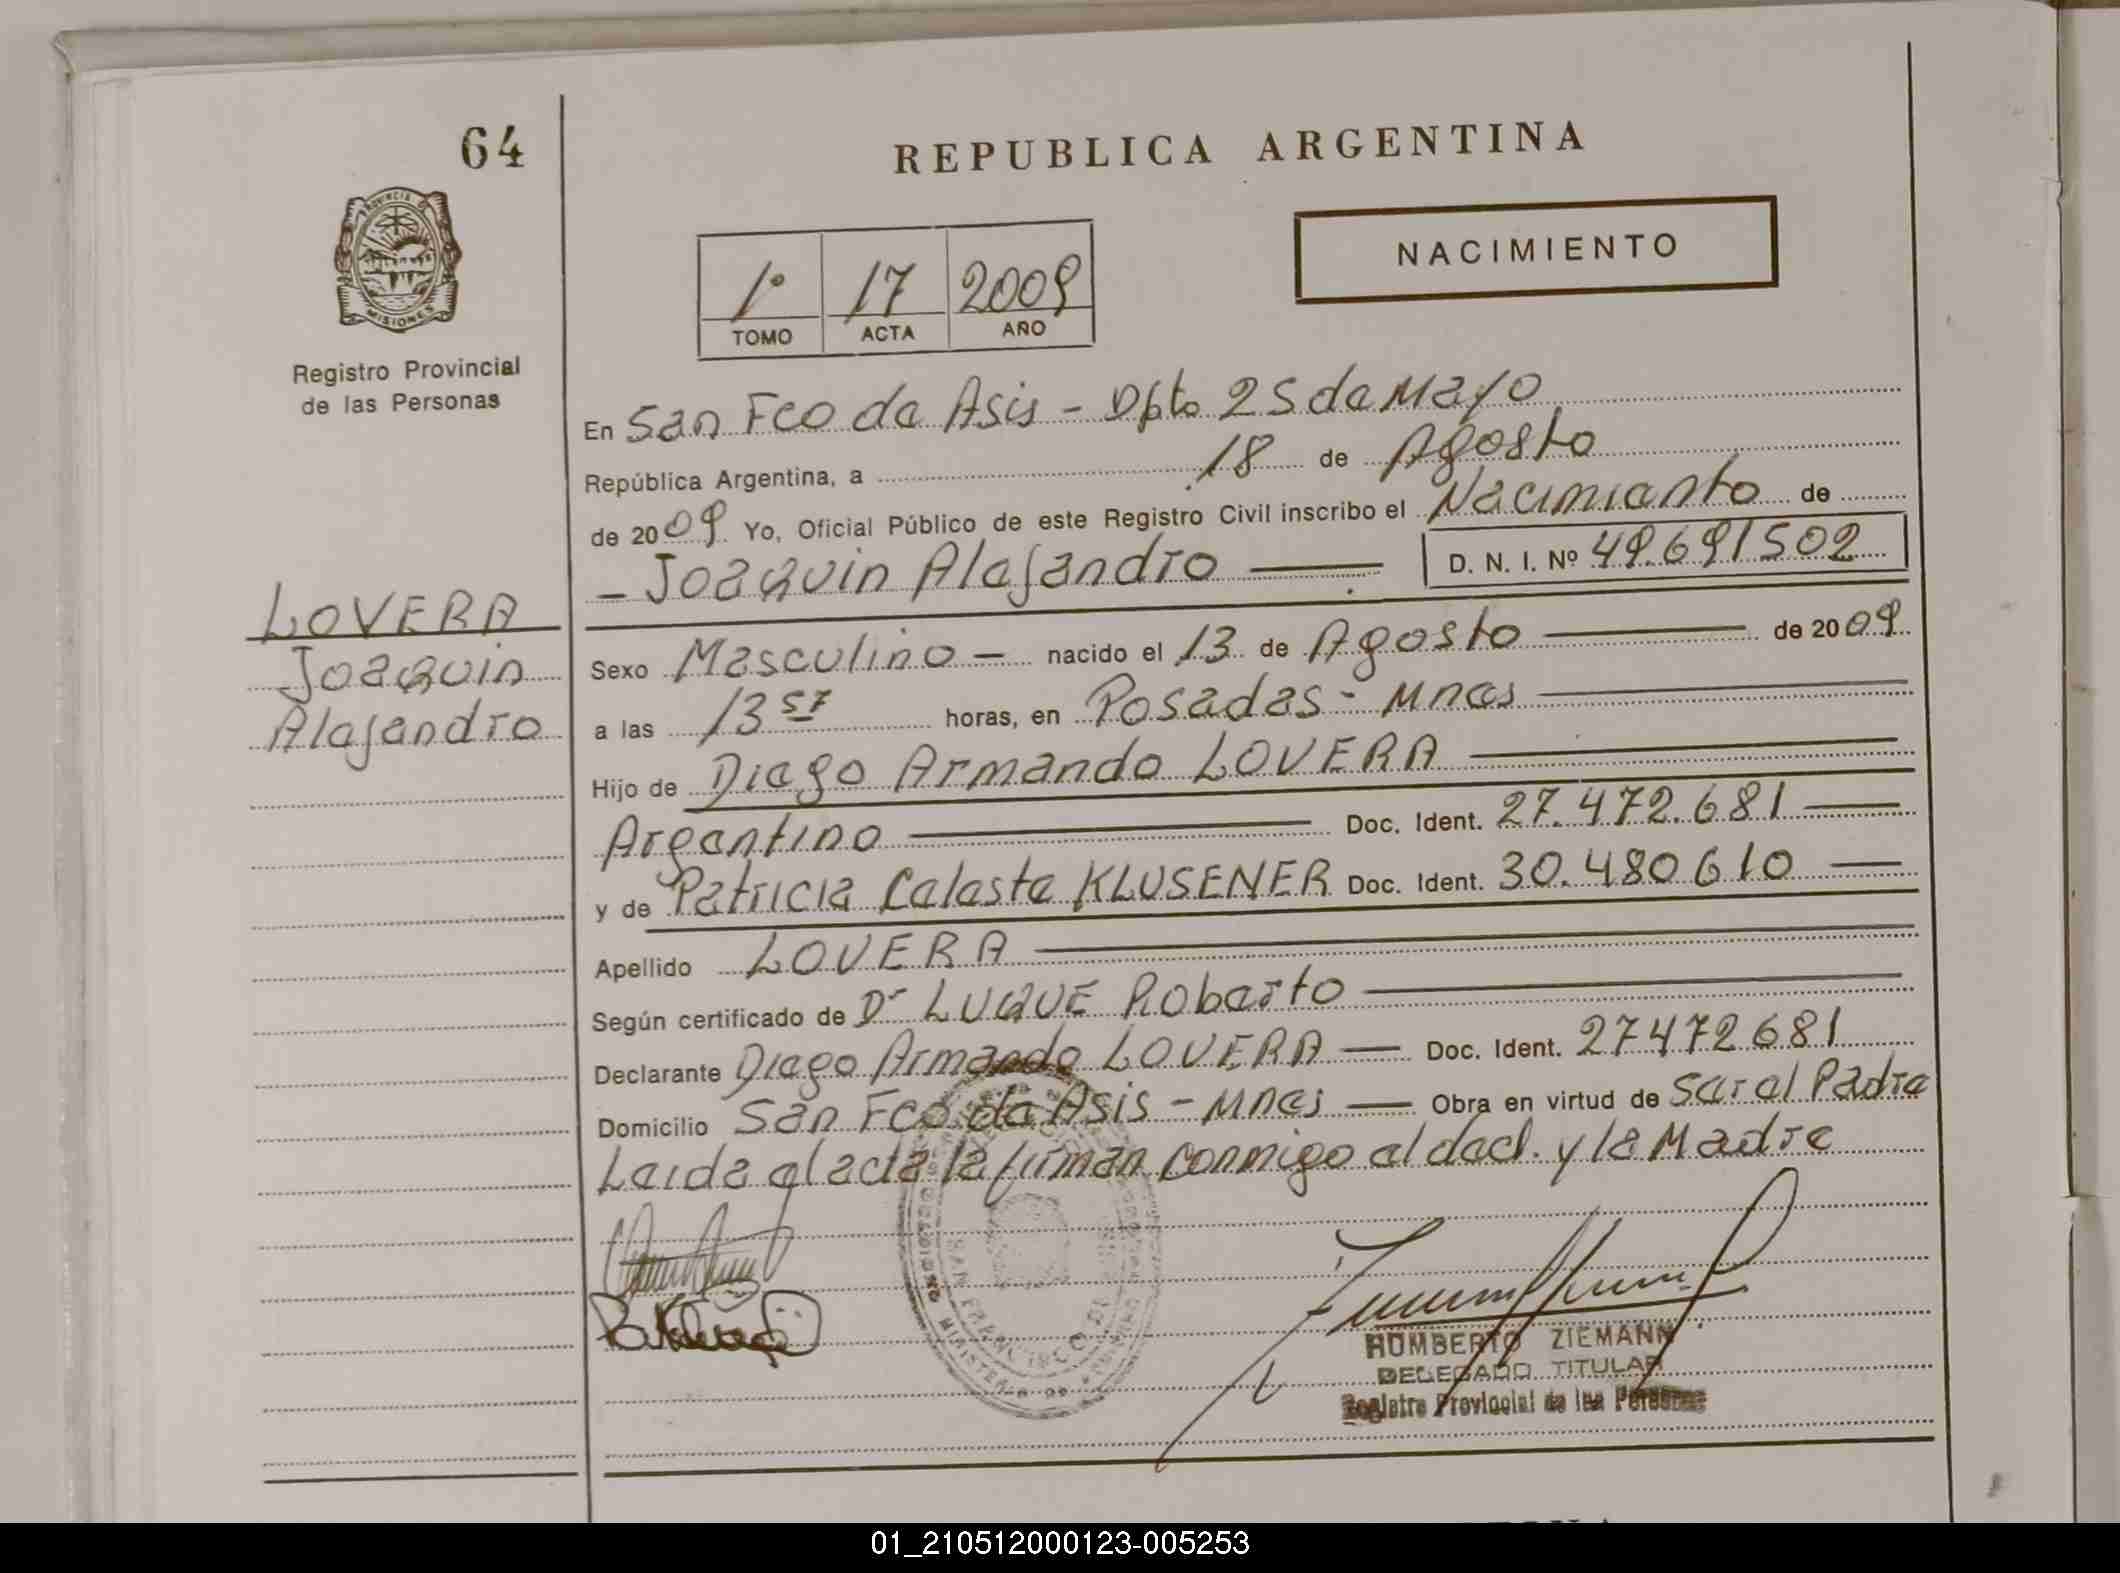 64
REPUBLICA ARGENTINA
PROVINCIA DE
MISIONES
Registro Provincial
de las Personas
NACIMIENTO
1º 17 2009
TOMO ACTA AÑO
En San Fco de Asis - Dpto 25 de Mayo
República Argentina, a 18 de Agosto
de 2009 Yo, Oficial Público de este Registro Civil inscribo el Nacimiento de
- Joaquin Alejandro
D. N. I. Nº 49.691502
LOVERA
Joaquin
Alejandro
Sexo Masculino - nacido el 13 de Agosto de 2009
a las 13 57 horas, en Posadas - Mnes
Hijo de Diego Armando LOVERA
Argentino Doc. Ident. 27.472.681
y de Patricia Celeste KLUSENER Doc. Ident. 30.480610
Apellido LOVERA
Según certificado de Dr LUQUE Roberto
Declarante Diego Armando LOVERA Doc. Ident. 27472681
Domicilio San Fco de Asis - Mnes Obra en virtud de Ser el Padre
Leida el acta la firman conmigo el decl. y la Madre
SAN FRANCISCO DE
HUMBERTO ZIEMANN
DELEGADO TITULAR
Registro Provincial de las Personas
01_210512000123-005253